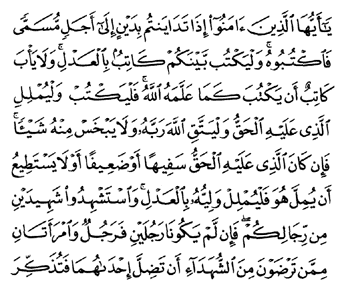 يَـٰٓأَيُّهَا ٱلَّذِينَ ءَامَنُوٓا۟ إِذَا تَدَايَنتُم بِدَيْنٍ إِلَىٰٓ أَجَلٍ مُّسَمًّى
فَٱكْتُبُوهُ ۚ وَلْيَكْتُب بَّيْنَكُمْ كَاتِبٌۢ بِٱلْعَدْلِ ۚ وَلَا يَأْبَ
كَاتِبٌ أَن يَكْتُبَ كَمَا عَلَّمَهُ ٱللَّهُ ۚ فَلْيَكْتُبْ وَلْيُمْلِلِ
ٱلَّذِى عَلَيْهِ ٱلْحَقُّ وَلْيَتَّقِ ٱللَّهَ رَبَّهُۥ وَلَا يَبْخَسْ مِنْهُ شَيْـًٔا ۚ
فَإِن كَانَ ٱلَّذِى عَلَيْهِ ٱلْحَقُّ سَفِيهًا أَوْ ضَعِيفًا أَوْ لَا يَسْتَطِيعُ
أَن يُمِلَّ هُوَ فَلْيُمْلِلْ وَلِيُّهُۥ بِٱلْعَدْلِ ۚ وَٱسْتَشْهِدُوا۟ شَهِيدَيْنِ
مِن رِّجَالِكُمْ ۖ فَإِن لَّمْ يَكُونَا رَجُلَيْنِ فَرَجُلٌ وَٱمْرَأَتَانِ
مِمَّن تَرْضَوْنَ مِنَ ٱلشُّهَدَآءِ أَن تَضِلَّ إِحْدَىٰهُمَا فَتُذَكِّرَ